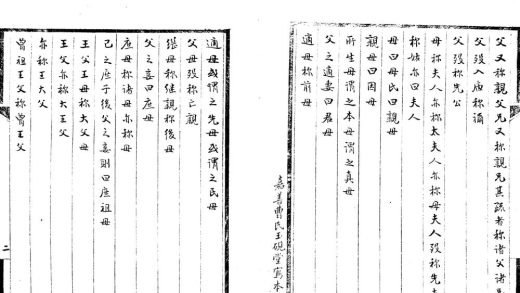 父又称親父兄又称親兄其疏者称諸父諸
父没入廟称禰
父没称先公
母称夫人亦称太夫人亦称母夫人没称先
称姑亦曰夫人
母曰母氏曰親母
親母曰因母
所生母謂之本母謂之真母
父之適妻曰君母
適母称前母
嘉善曹氏玉硯堂寫本
適母或謂之先母或謂之民母
父母殁称亡親
继母称继親称後母
父之妾曰庶母
庶母称諸母亦称母
己之庶子後父之妾則曰庶祖母
王父王母称大父母
王父亦称大王父
亦称王大父
曾祖王父称曾王父
二